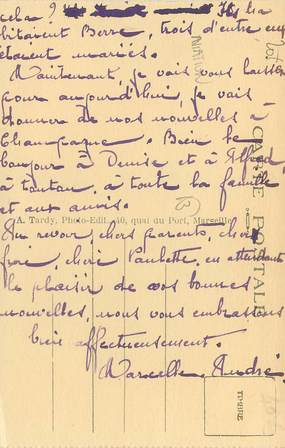 cela ? Ils ha
bitaient Berre, trois d'entre eux
étaient mariés.
Maintenant, je vais vous laisser
pour aujourd'hui, je vais
donner de nos nouvelles à
Champagne. Bien le
bonjour à Denise et à Alfred,
à tonton, à toute la famille
et aux amis.
A. Tardy, Photo-Edit., 40, quai du Port, Marseille
Au revoir, chers parents, cher
frère, chère Paulette, en attendant
le plaisir de vos bonnes
nouvelles, nous vous embrassons
bien affectueusement.
Marcelle, André
CARTE POSTALE
TIMBRE
13